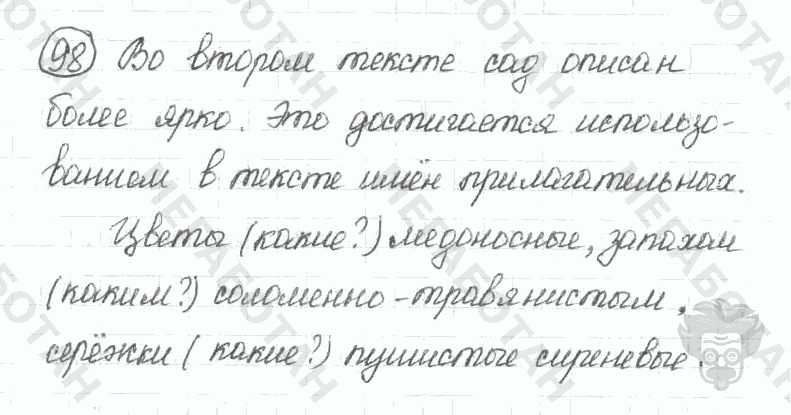 98 Во втором тексте сад описан
более ярко. Это достигается использо-
ванием в тексте имён прилагательных.
Цветы (какие?) медоносные, запахом
(каким?) соломенно-травянистым,
серёжки (какие?) пушистые сиреневые.
МЕГАБОТАН